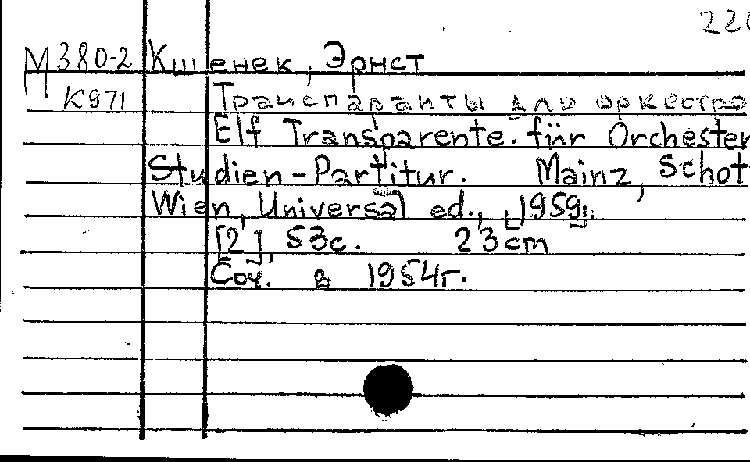 220
М380-2 Кшенек, Эрнст
К971 Транспаранты для оркестра
Elf Transparente. für Orchester
Studien-Partitur. Mainz, Schot
Wien, Universal ed., [1959].
[2], 53с. 23cm
Соч. в 1954г.